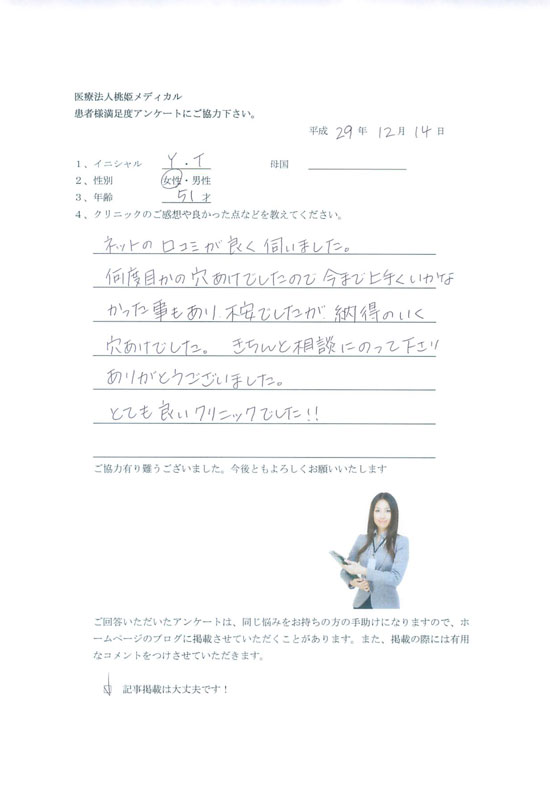 医療法人桃姫メディカル
患者様満足度アンケートにご協力下さい。
平成 29 年 12 月 14 日
1、イニシャル Y・T 母国
2、性別 女性・男性
3、年齢 51 才
4、クリニックのご感想や良かった点などを教えてください。
ネットの口コミが良く伺いました。
何度目かの穴あけでしたので今まで上手くいかな
かった事もあり、不安でしたが、納得のいく
穴あけでした。きちんと相談にのって下さり
ありがとうございました。
とても良いクリニックでした!!
ご協力有り難うございました。今後ともよろしくお願いいたします
ご回答いただいたアンケートは、同じ悩みをお持ちの方の手助けになりますので、ホ
ームページのブログに掲載させていただくことがあります。また、掲載の際には有用
なコメントをつけさせていただきます。
記事掲載は大丈夫です！